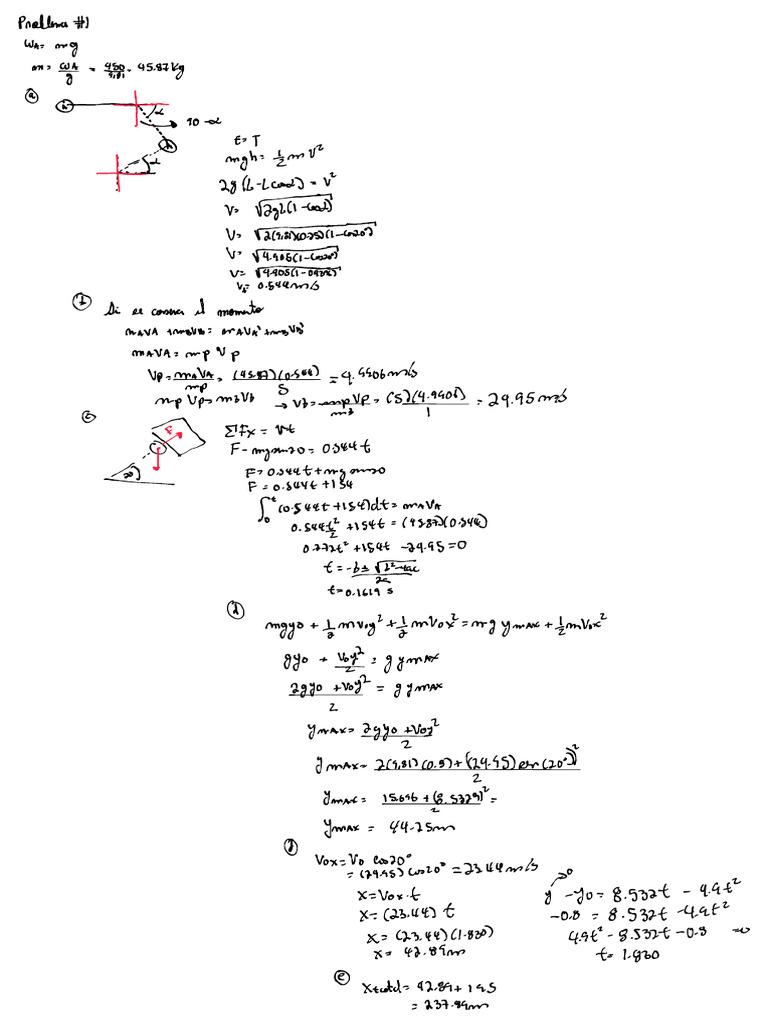 Problema #1
WA= mg
m= WA/g = 450/9,81 = 45.87 kg
a
α
90-α
α
t= T
mgh= 1/2 m V²
2g(L-Lcosα) = V²
V= √2gL(1-cosα)
V= √2(9,81)(0.25)(1-cos20°)
V= √4.905(1-cos20°)
V= √4.905(1-0.939)
= 0.544m/s
Si se conserva el momento
mAVA + mBVB = mAVA' + mBVB'
mAVA = mp Vp
Vp= mAVA/mp = (45.87)(0.544)/5 = 4.9906m/s
mp Vp= mBVb → Vb= mpVp/mB = (5)(4.9906)/1 = 24.95 m/s
c
F
20
ΣFx = Vt
F - mgsen20 = 0.544t
F= 0.544t + mg sen20
F= 0.544t + 154
∫₀ᵗ (0.544t + 154)dt = mAVA
0.544t²/2 + 154t = (45.87)(0.544)
0.272t² + 154t - 24.95 = 0
t= -b ± √b²-4ac / 2a
t= 0.1619 s
d
mgy0 + 1/2 mV0y² + 1/2 mV0x² = mg ymax + 1/2 mV0x²
gy0 + V0y²/2 = g ymax
2gy0 + V0y²/2 = g ymax
ymax= 2gy0 + V0y²/2
ymax= 2(9,81)(0.8) + ((24.95)sen(20°))²/2
ymax= 15.696 + (8.5329)²/2 =
ymax = 44.25m
V0x= V0 cos20°
= (24.95) cos20° = 23.44 m/s
X= V0x·t
X= (23.44) t
X= (23.44)(1.830)
X= 42.89m
0
y - y0 = 8.532t - 4.9t²
-0.8 = 8.532t - 4.9t²
4.9t² - 8.532t - 0.8 = 0
t= 1.830
e
Xtotal= 42.89 + 195
= 237.89m